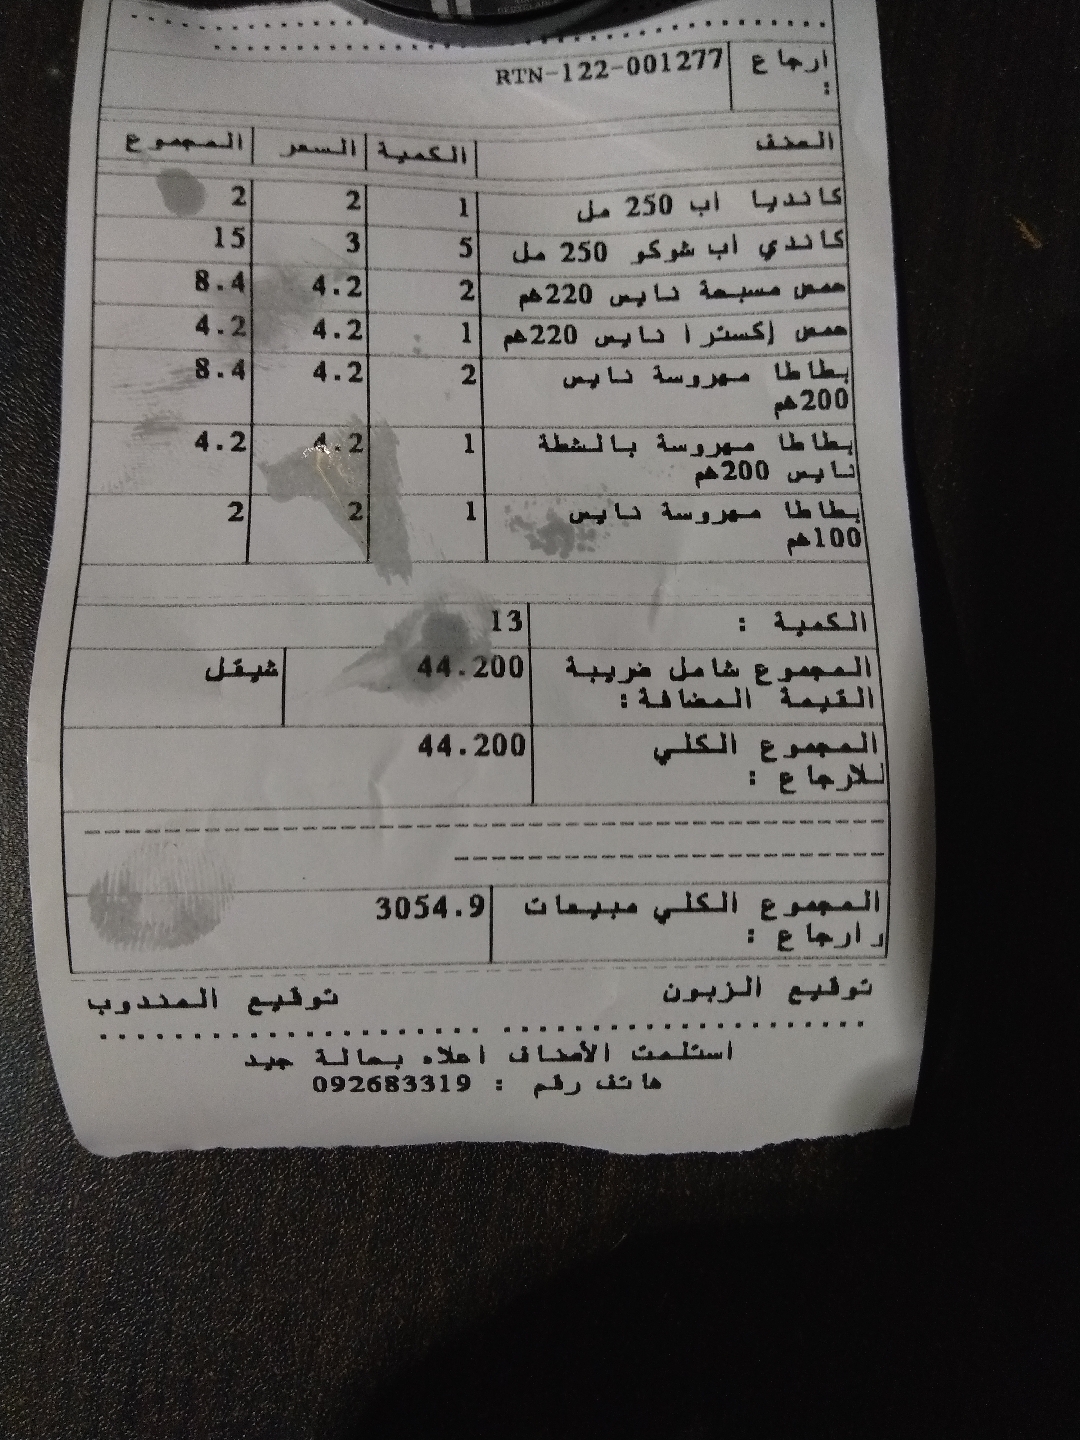 ارجاع : RTN-122-001277
الصنف الكمية السعر المجموع
كانديا اب 250 مل 1 2 2
كاندي اب شوكو 250 مل 5 3 15
حمص مسبحة نايس 220غم 2 4.2 8.4
حمص إكسترا نايس 220غم 1 4.2 4.2
بطاطا مهروسة نايس 2 4.2 8.4
200غم
بطاطا مهروسة بالشطة 1 4.2 4.2
نايس 200غم
بطاطا مهروسة نايس 1 2 2
100غم
الكمية : 13
المجموع شامل ضريبة 44.200 شيقل
القيمة المضافة :
المجموع الكلي 44.200
للارجاع :
المجموع الكلي مبيعات 3054.9
وارجاع :
توقيع الزبون توقيع المندوب
استلمت الأصناف اعلاه بحالة جيد
هاتف رقم : 092683319